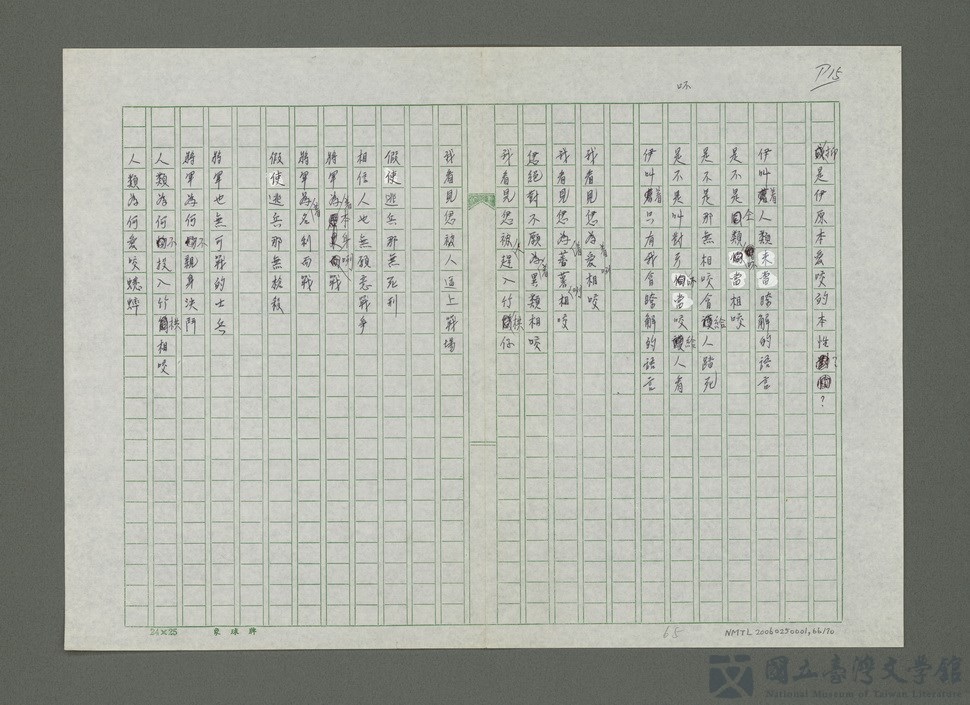 P15
抑是伊原本愛咬的本性?
伊叫着人類未當瞭解的語言
是不是仝類 相咬
是不是那無相咬會給人踏死
是不是叫對方 咬給人看
伊叫着只有我會瞭解的語言
我看見您為着愛相咬
我看見您為着蕃薯相咬
您絕對不願為着異類相咬
我看見您被趕入竹 仔
我看見您被人逗上戰場
假使逃兵那無死刑
相信人也無願意戰爭
將軍為着本身 戰
將軍為着名利而戰
假使逃兵那無槍殺
將軍也無可戰的士兵
將軍為何不親身決鬥
人類為何不投入竹 相咬
人類為何愛咬蟋蟀
24×25
NMTL 20060250001,66/70
65
國立臺灣文學館
National Museum of Taiwan Literature